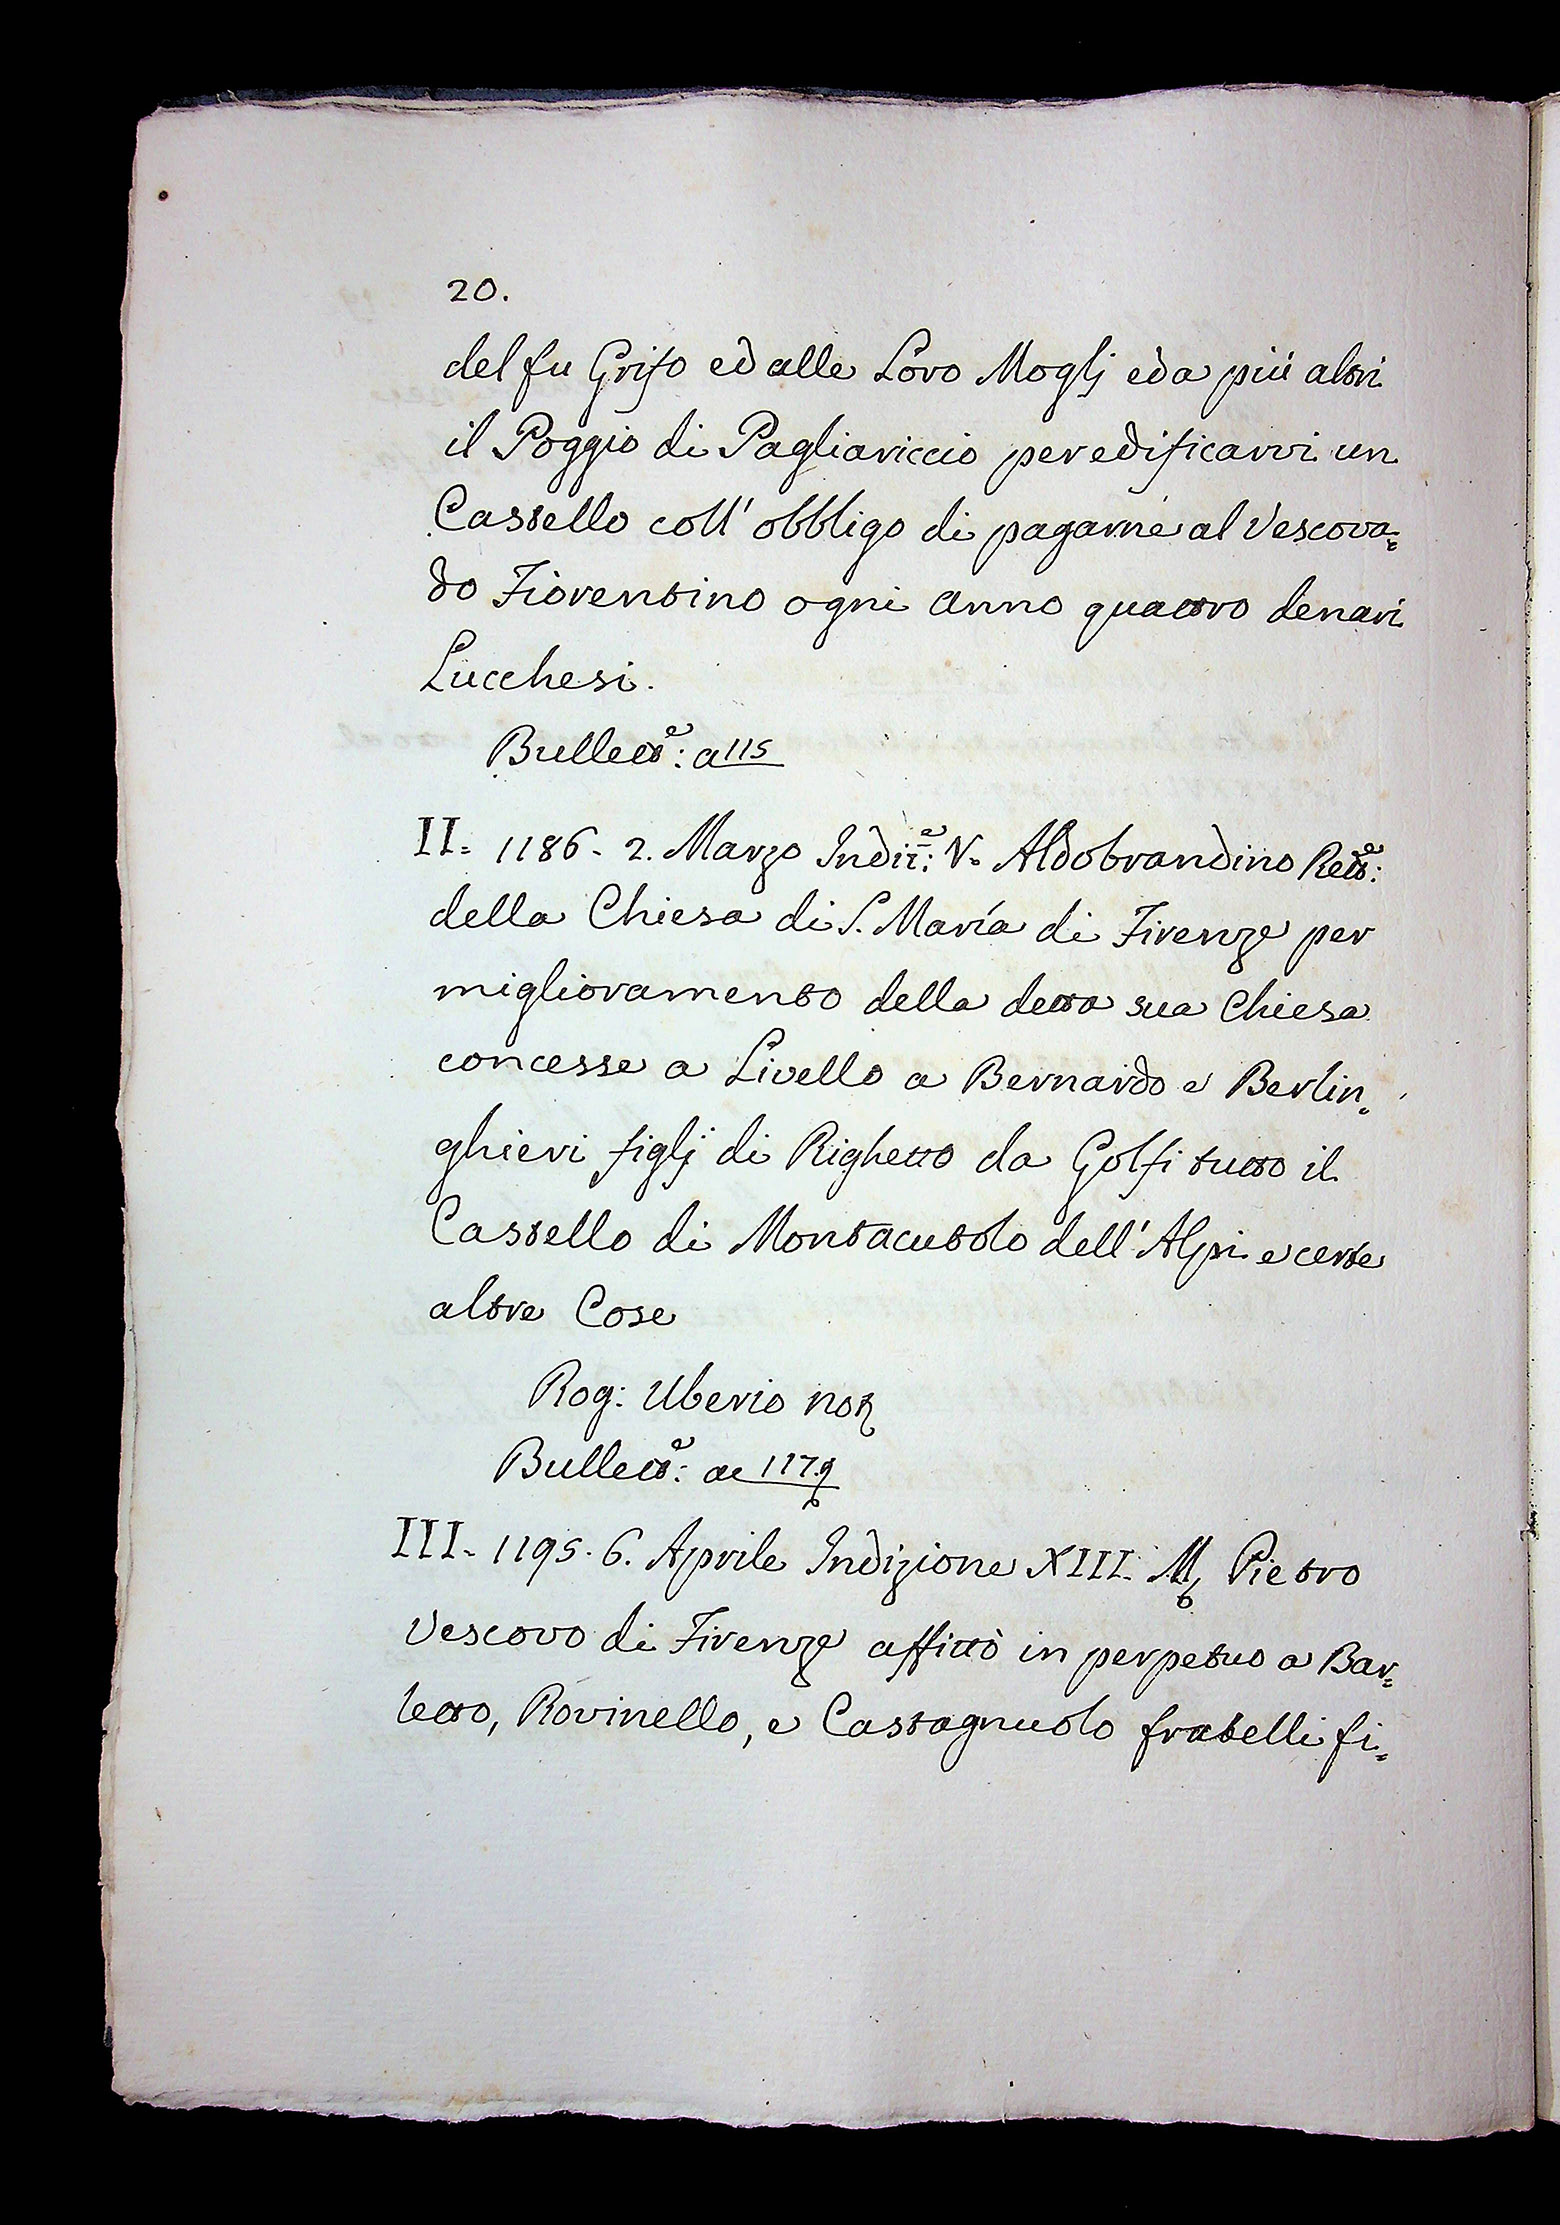 20.
del fu Grifo ed alle Loro Moglj ed a più altri
il Poggio di Pagliariccio per edificarvi un
Castello coll' obbligo di pagarne al Vescova=
do Fiorentino ogni anno quattro denari
Lucchesi.
Bullett:e a 115
II. 1186. 2. Marzo Indiz:e V. Aldobrandino Rett:e
della Chiesa di S. María di Firenze per
miglioramento della detta sua Chiesa
concesse a Livello a Bernardo e Berlin=
ghieri figlj di Righetto da Golfi tutto il
Castello di Montacutolo dell' Alpi e certe
altre Cose
Rog: Uberio not
Bullett:e ae 117.
III. 1195. 6. Aprile Indizione XIII. M. Pietro
Vescovo di Firenze affittò in perpetuo a Bar=
letto, Rovinello, e Castagnuolo fratelli fi=